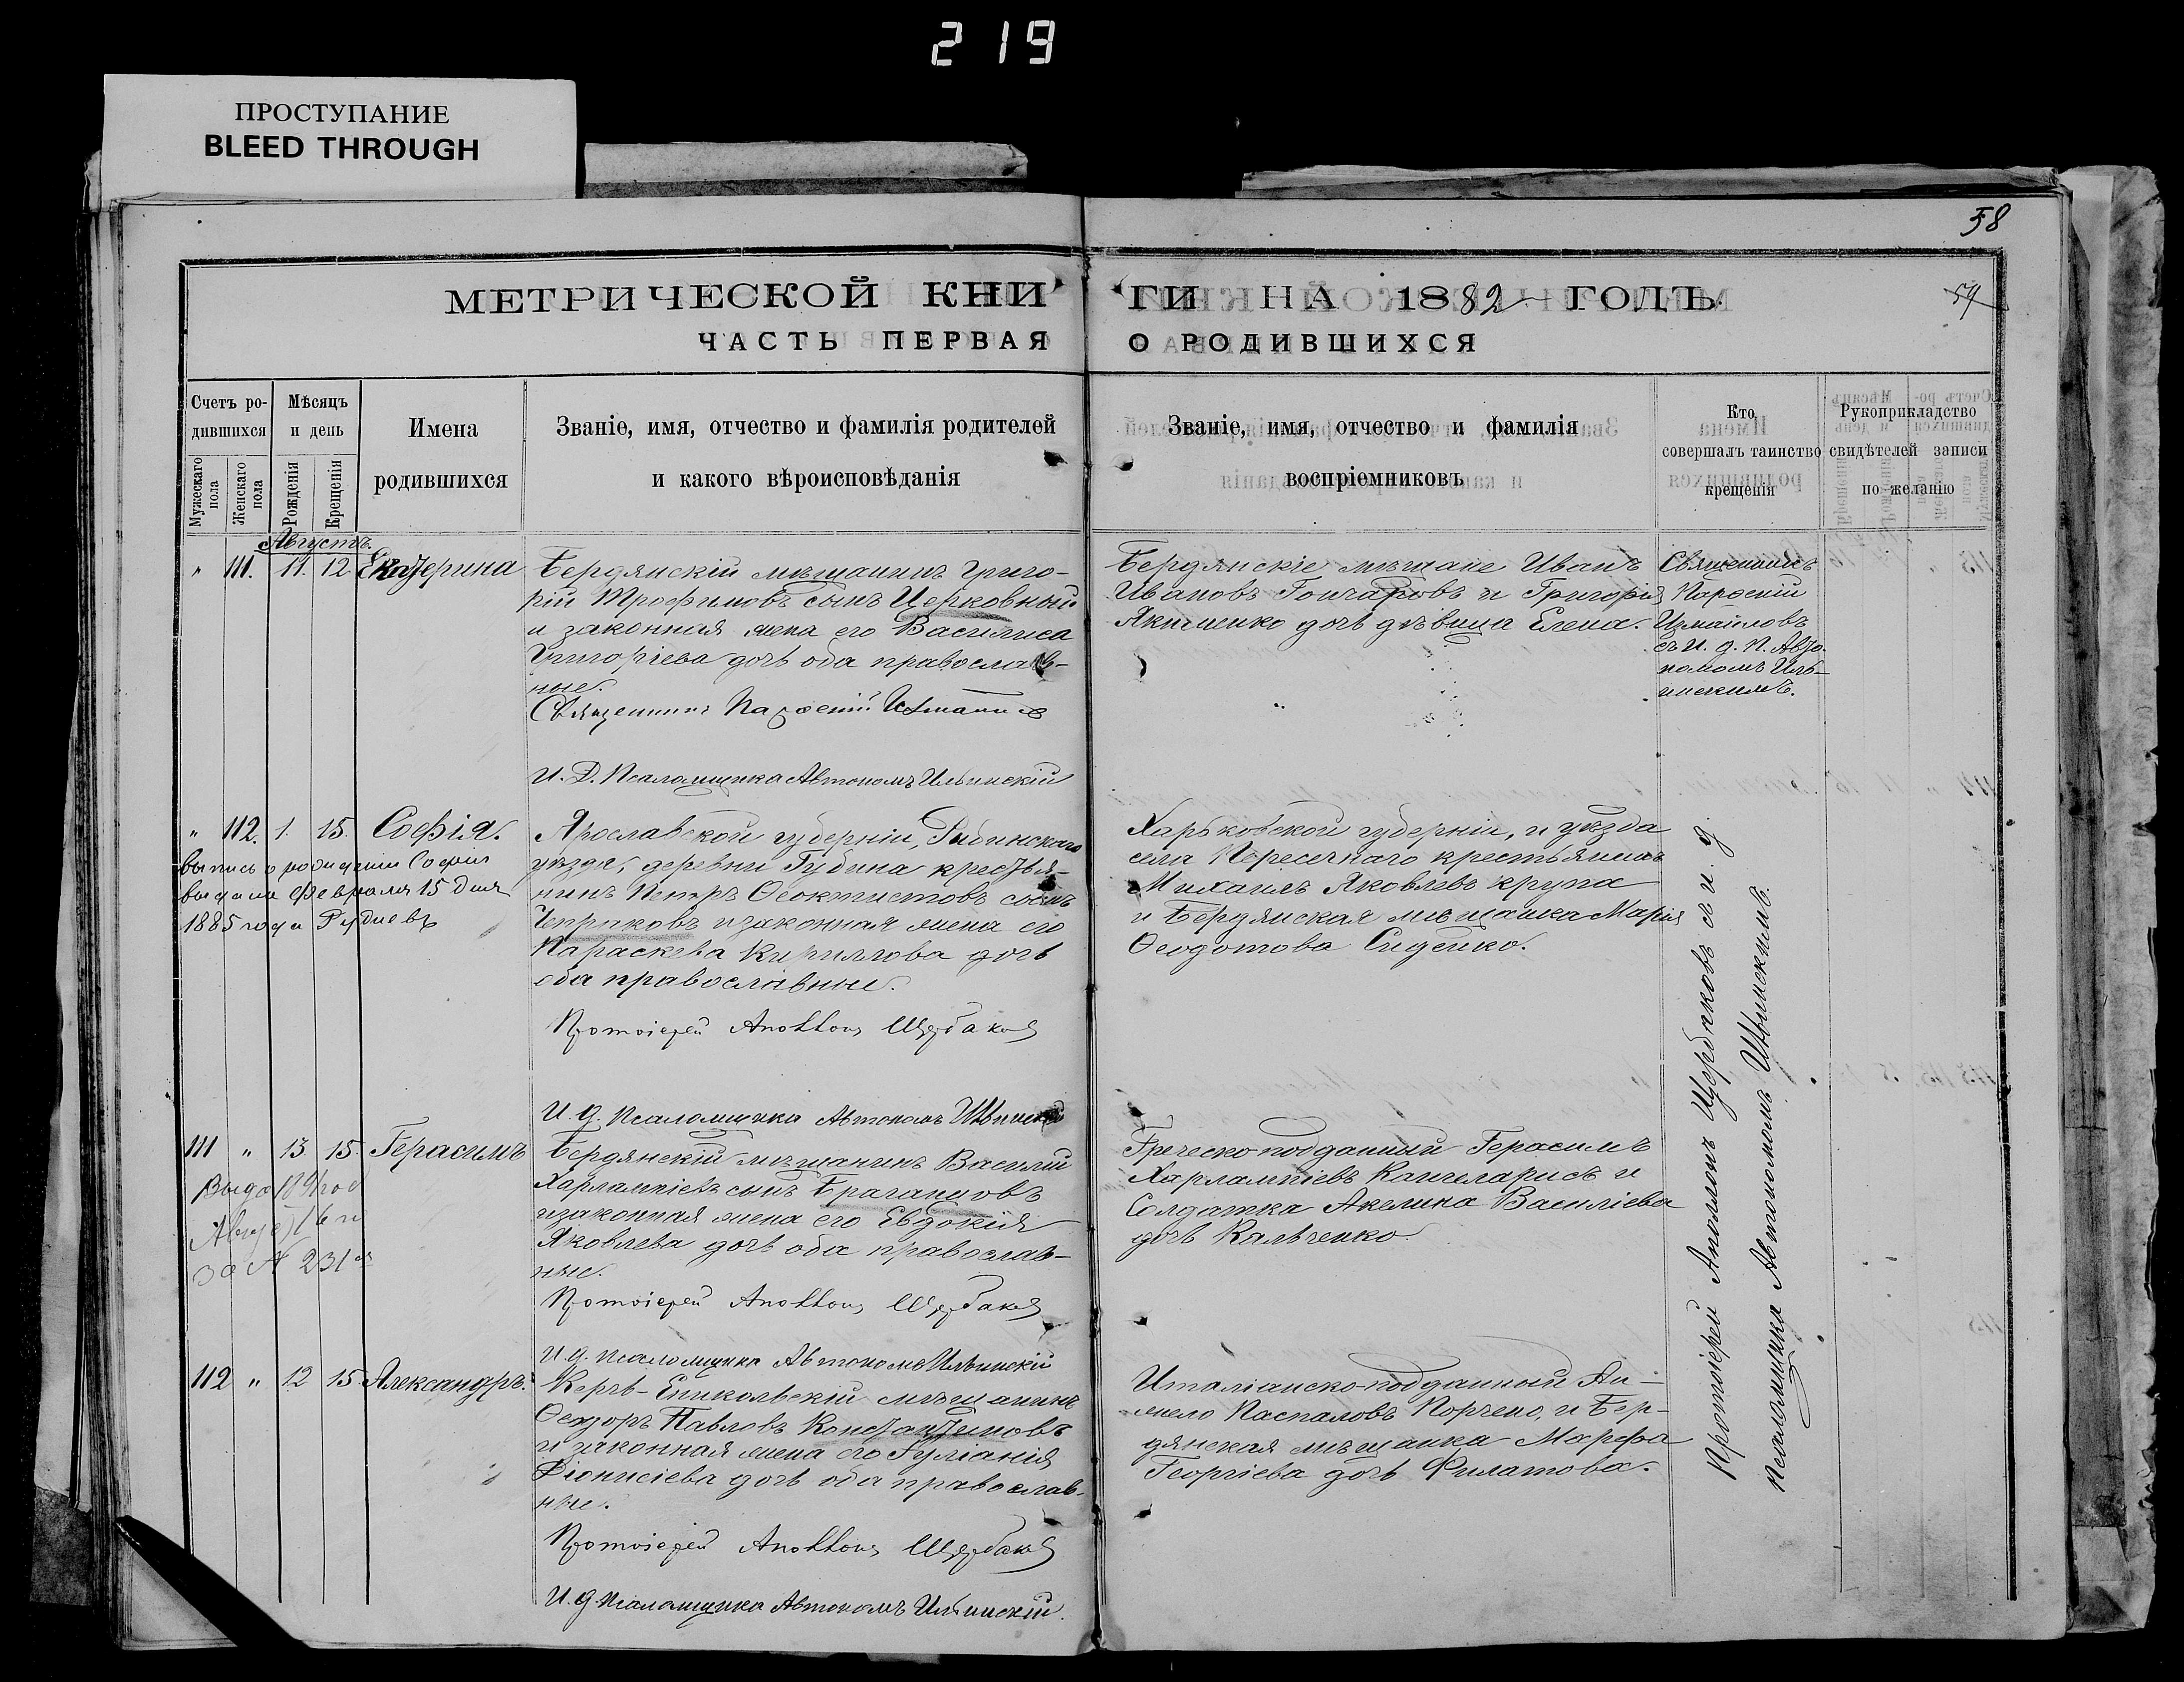 219
ПРОСТУПАНИЕ
BLEED THROUGH
58
МЕТРИЧЕСКОЙ КНИ
ГИ НА 1882 ГОДЪ.
59
ЧАСТЬ ПЕРВАЯ
О РОДИВШИХСЯ
Счетъ ро-
дившихся
Мужескаго пола
Женскаго пола
Мѣсяцъ
и день
Рожденія
Крещенія
Имена
родившихся
Званіе, имя, отчество и фамилія родителей
и какого вѣроисповѣданія
Званіе, имя, отчество и фамилія
воспріемниковъ
Кто
совершалъ таинство
крещенія
Рукоприкладство
свидѣтелей записи
по желанію
Августъ.
" 111. 11. 12 Екатерина
Бердянскій мѣщанинъ Григо-
рій Трофимовъ сынъ Церковный
и законная жена его Василиса
Григоріева дочь оба православ-
ные.
Священникъ Парѳеній Измаиловъ
И. Д. Псаломщика Автономъ Ильинскій
Бердянскіе мѣщане Иванъ
Ивановъ Гончаровъ и Григорія
Якименко дочь дѣвица Елена.
Священникъ
Парѳеній
Измаиловъ
съ И. д. П. Авто-
номомъ Иль-
инскимъ.
" 112. 1. 15. Софія.
выпись о рожденіи Софіи
выдана Февраля 15 дня
1885 года
Ярославской губерніи, Рыбинскаго
уѣзда, деревни Губина крестья-
нинъ Петръ Ѳеоктистовъ сынъ
и законная жена его
Параскева Кириллова дочь
оба православные.
Протоіерей Аполлонъ Щербаковъ
И. д. Псаломщика Автономъ Ильинскій
Харьковской губерніи, и уѣзда
села Пересечнаго крестьянинъ
Михаилъ Яковлевъ Крупа
и Бердянская мѣщанка Марія
Ѳеодотова Сиденко.
111 " 13 15. Герасимъ
231
Бердянскій мѣщанинъ Василій
Харлампіевъ сынъ
и законная жена его Евдокія
Яковлева дочь оба православ-
ные.
Протоіерей Аполлонъ Щербаковъ
И. д. Псаломщика Автономъ Ильинскій
Греческо-подданный Герасимъ
Харлампіевъ Канчеларисъ и
Солдатка Акелина Василіева
дочь Кальченко.
112 " 12 15 Александръ.
Керчь-Еникольскій мѣщанинъ
Ѳеодоръ Павловъ Константиновъ
и законная жена его Іуліанія
Діонисіева дочь оба православ-
ные.
Протоіерей Аполлонъ Щербаковъ
И. д. Псаломщика Автономъ Ильинскій.
Италіанско-подданный Ан-
жело Паспаловъ и Бер-
дянская мѣщанка Марфа
Георгіева дочь Филатова.
Протоіерей Аполлонъ Щербаковъ съ и. д.
Псаломщика Автономомъ Ильинскимъ.